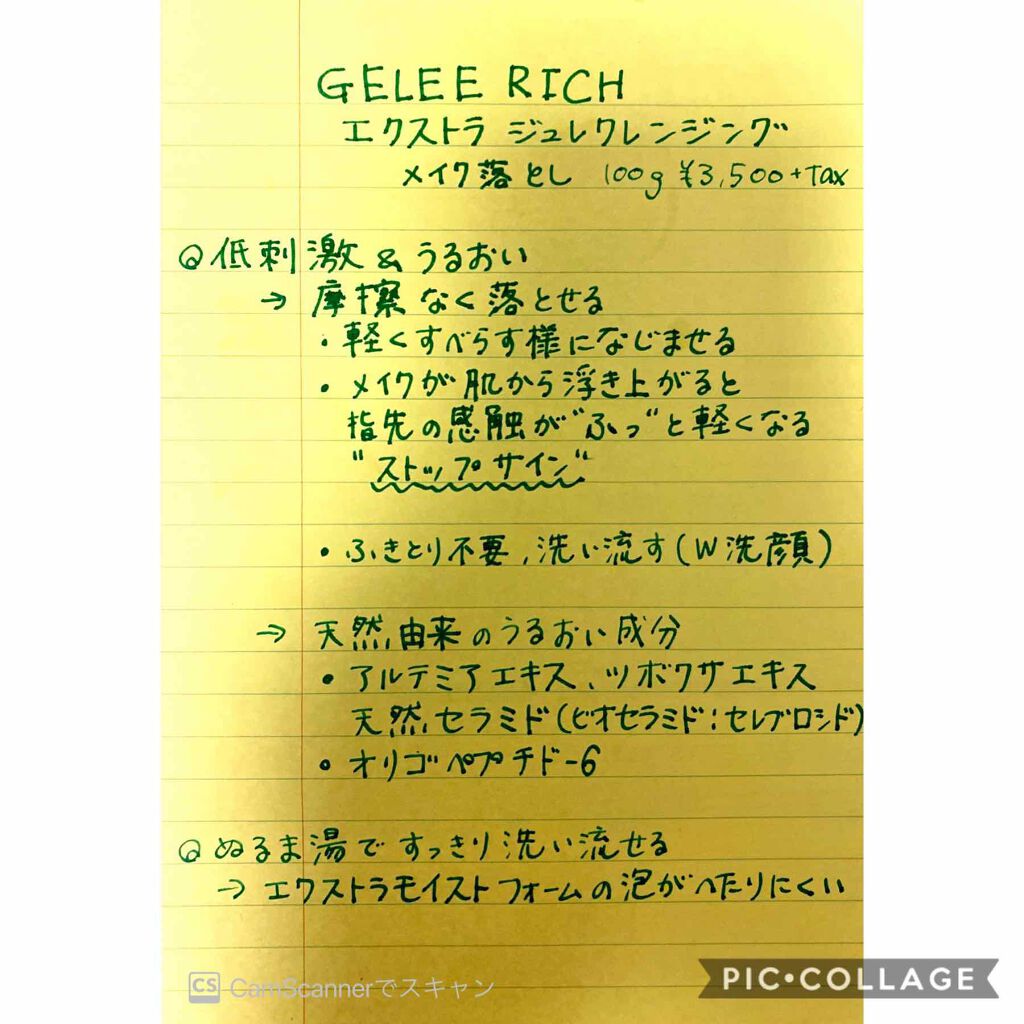 GELEE RICH
エクストラ ジュレクレンジング
メイク落とし 100g ¥3,500+Tax
低刺激&うるおい
→ 摩擦なく落とせる
・軽くすべらす様になじませる
・メイクが肌から浮き上がると
指先の感触が"ふっ"と軽くなる
"ストップサイン"
・ふきとり不要、洗い流す(W洗顔)
→ 天然由来のうるおい成分
・アルテミアエキス、ツボクサエキス
天然セラミド(ビオセラミド:セレブロシド)
・オリゴペプチド-6
ぬるま湯ですっきり洗い流せる
→ エクストラモイストフォームの泡がへたりにくい
CS CamScannerでスキャン
PIC•COLLAGE